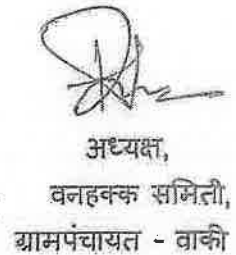 अध्यक्ष,
वनहक्क समिती,
ग्रामपंचायत - वाकी